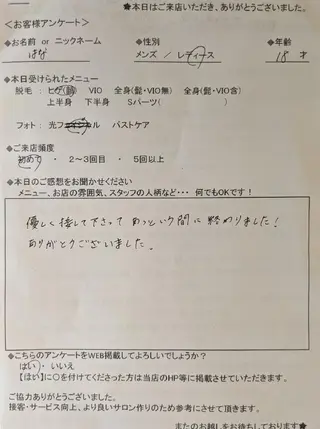 ★本日はご来店いただき、ありがとうございました。
＜お客様アンケート＞
◆お名前 or ニックネーム ◆性別 ◆年齢
はな メンズ / レディース 18 才
◆本日受けられたメニュー
脱毛 : ヒゲ(顔) VIO 全身(髭・VIO無) 全身(髭・VIO含)
上半身 下半身 Sパーツ( )
フォト : 光フェイシャル バストケア
◆ご来店頻度
初めて ・ 2～3回目 ・ 5回以上
◆本日のご感想をお聞かせください
メニュー、お店の雰囲気、スタッフの人柄など・・・ 何でもOKです！
優しく接して下さって あっという間に終わりました！
ありがとうございました。
◆こちらのアンケートをWEB掲載してよろしいでしょうか？
はい ・ いいえ
【はい】に○を付けてくださった方は当店のHP等に掲載させていただきます。
ご協力ありがとうございました。
接客・サービス向上、より良いサロン作りのため参考にさせて頂きます。
またのお越しをお待ちしております★